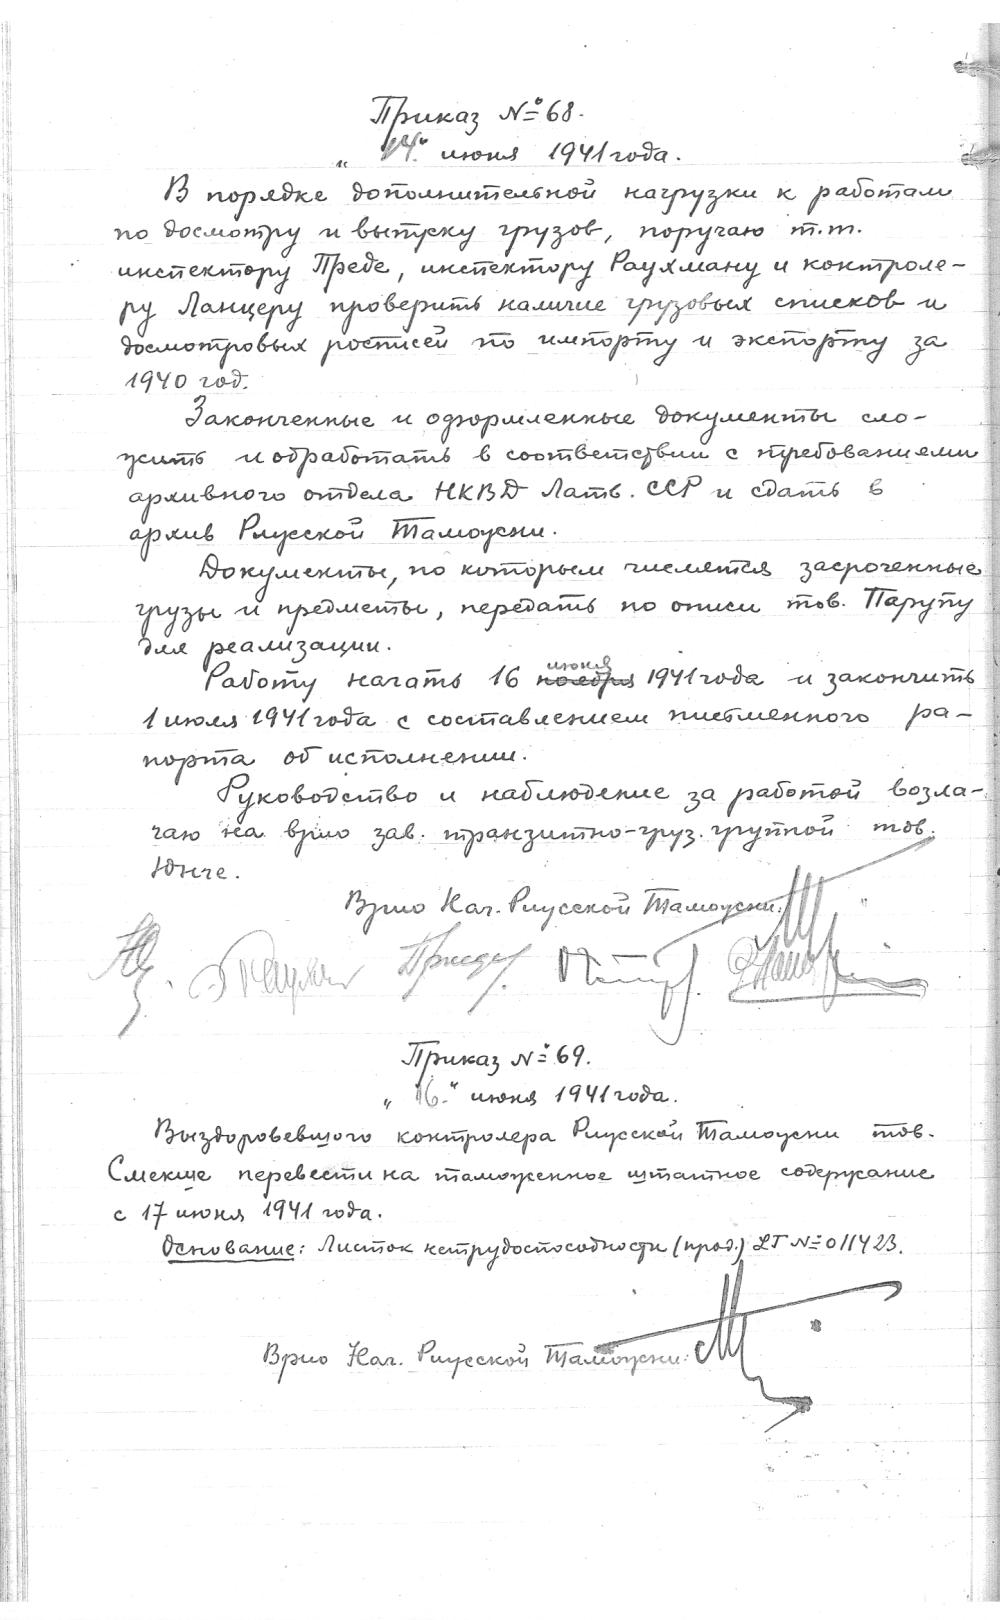 Приказ № 68.
„14.“ июня 1941 года.
В порядке дополнительной нагрузки к работам
по досмотру и выпуску грузов, поручаю т.т.
инспектору Преде, инспектору Раухману и контроле-
ру Ланцеру проверить наличие грузовых списков и
досмотровых росписей по импорту и экспорту за
1940 год.
Законченные и оформленные документы сло-
жить и обработать в соответствии с требованиями
архивного отдела НКВД Латв. ССР и сдать в
архив Рижской Таможни.
Документы, по которым числятся засроченные
грузы и предметы, передать по описи тов. Парупу
для реализации.
июня
Работу начать 16 ноября 1941 года и закончить
1 июля 1941 года с составлением письменного ра-
порта об исполнении.
Руководство и наблюдение за работой возла-
гаю на врио зав. транзитно-груз. группой тов.
Юнче.
Врио Нач. Рижской Таможни:
Приказ № 69.
„16.“ июня 1941 года.
Выздоровевшого контролера Рижской Таможни тов.
Смекше перевести на таможенное штатное содержание
с 17 июня 1941 года.
Основание: Листок нетрудоспособности (прод.) LT № 011423.
Врио Нач. Рижской Таможни: